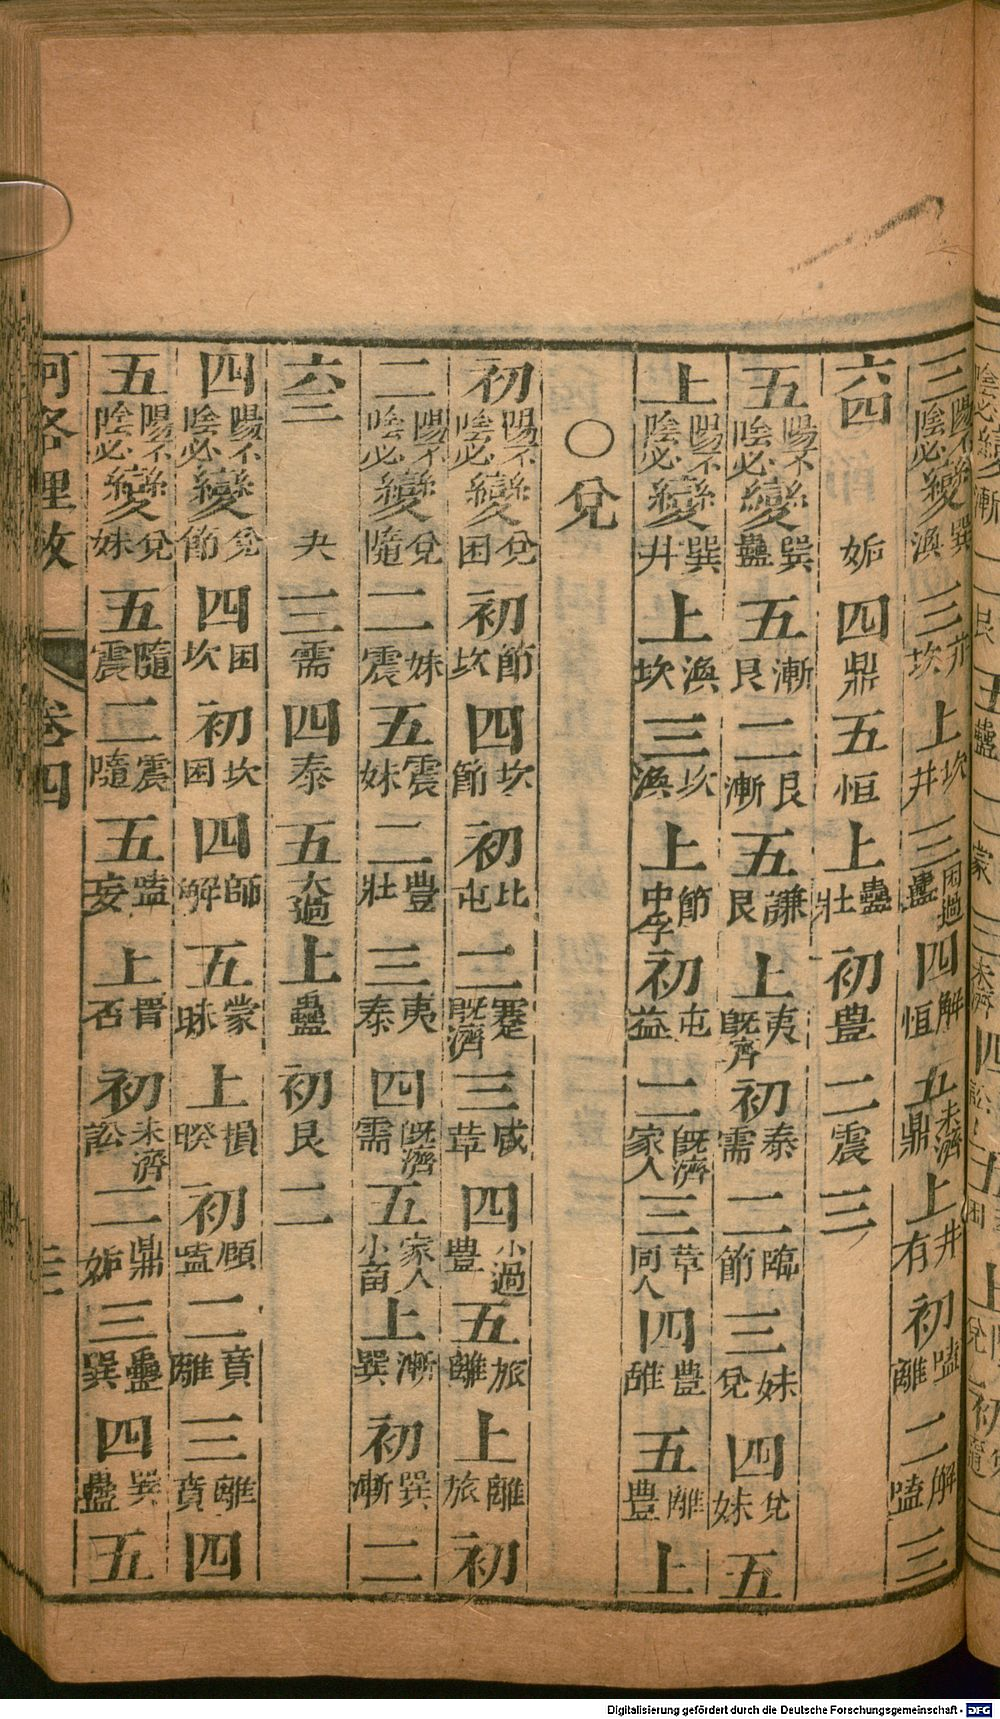 三陽不陰必變巽渙三井坎上坎井三困過蠱四解恒五未濟鼎上井有初嗑離二解嗑三
六四姤四鼎五恒上蠱壯初豊二震三
五陽不陰必變巽蠱五漸艮二艮漸五謙艮上夷既濟初泰需二臨節三妹兌四兌妹五
上陽不陰必變巽井上渙坎三坎渙上節中孚初屯益二既濟家人三革同人四豊離五離豊上
○兌
初陽不陰必變兌困初節坎四坎節初比屯二蹇既濟三咸革四小過豊五旅離上離旅初
二陽不陰必變兌隨二妹震五震妹二豊壯三夷泰四既濟需五家人小畜上漸巽初巽漸二
六三夬三需四泰五大過上蠱初艮二
四陽不陰必變兌節四困坎初坎困四師解五蒙昧上損睽初頤嗑二賁離三離賁四
五陽不陰必變兌妹五隨震二震隨五嗑妄上晉否初未濟訟二鼎姤三蠱巽四巽蠱五
河洛理數 卷四
Digitalisierung gefördert durch die Deutsche Forschungsgemeinschaft - DFG